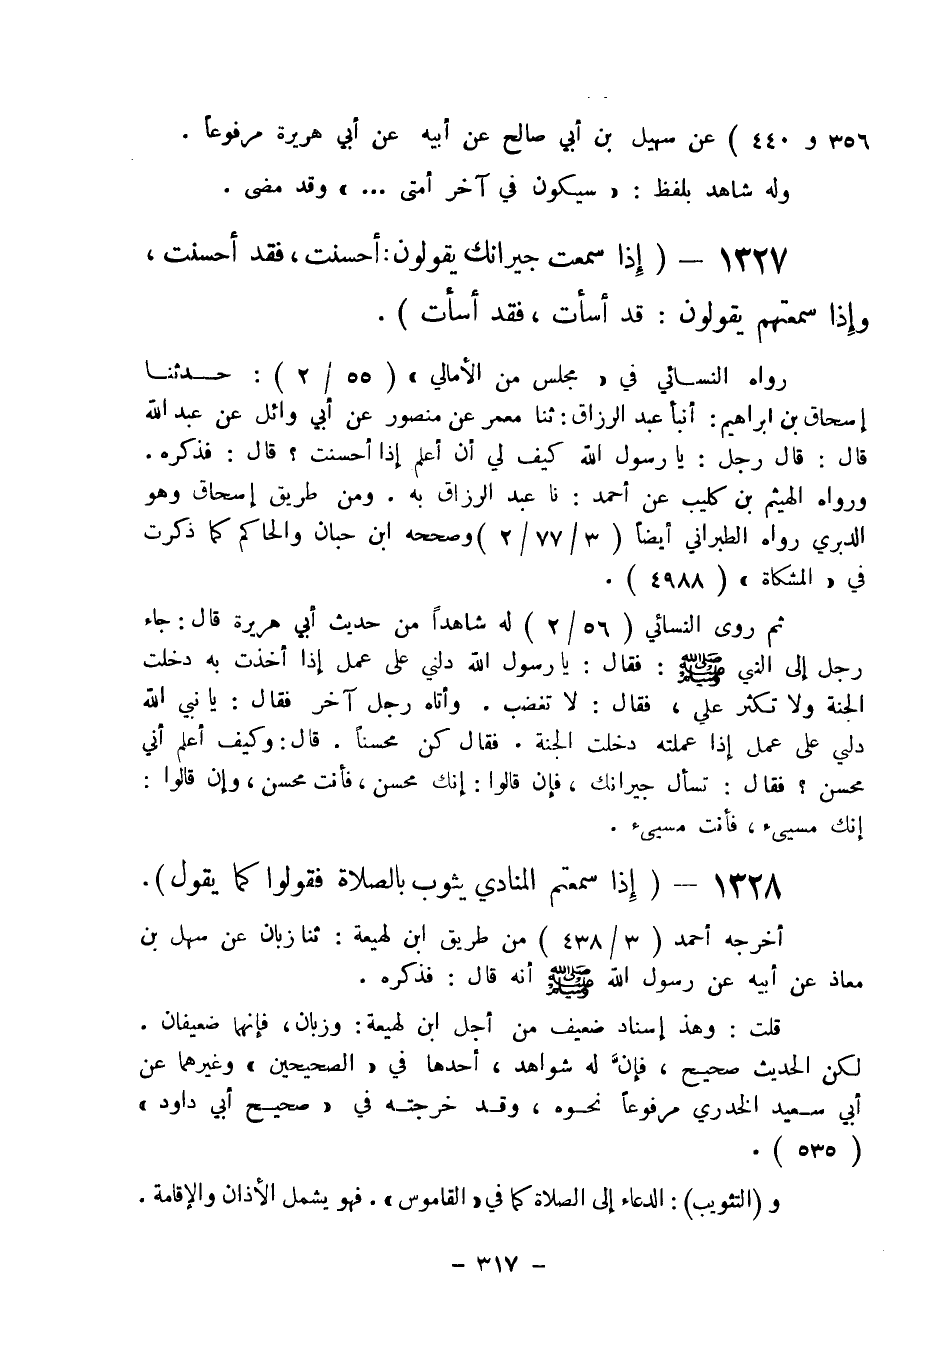 ٣٥٦ و ٤٤٠ ) عن سهيل بن أبي صالح عن أبيه عن أبي هريرة مرفوعاً .
وله شاهد بلفظ : « سيكون في آخر أمتي ... » وقد مضى .
١٣٢٧ – ( إذا سمعت جيرانك يقولون : أحسنت ، فقد أحسنت ،
وإذا سمعتهم يقولون : قد أسأت ، فقد أسأت ) .
رواه النسائي في « مجلس من الأمالي » ( ٥٥ / ٢ ) : حدثنا
إسحاق بن ابراهيم : أنبأ عبد الرزاق : ثنا معمر عن منصور عن أبي وائل عن عبد الله
قال : قال رجل : يا رسول الله كيف لي أن أعلم إذا أحسنت ؟ قال : فذكره .
ورواه الهيثم بن كليب عن أحمد : نا عبد الرزاق به . ومن طريق إسحاق وهو
الدبري رواه الطبراني أيضاً ( ٣ / ٧٧ / ٢ ) وصححه ابن حبان والحاكم كما ذكرت
في « المشكاة » ( ٤٩٨٨ ) .
ثم روى النسائي ( ٥٦ / ٢ ) له شاهداً من حديث أبي هريرة قال : جاء
رجل إلى النبي ﷺ : فقال : يا رسول الله دلني على عمل إذا أخذت به دخلت
الجنة ولا تكثر علي ، فقال : لا تغضب . وأتاه رجل آخر فقال : يا نبي الله
دلني على عمل إذا عملته دخلت الجنة . فقال كن محسناً . قال : وكيف أعلم أني
محسن ؟ فقال : تسأل جيرانك ، فإن قالوا : إنك محسن ، فأنت محسن ، وإن قالوا :
إنك مسيىء ، فأنت مسيىء .
١٣٢٨ – ( إذا سمعتم المنادي يثوب بالصلاة فقولوا كما يقول ) .
أخرجه أحمد ( ٣ / ٤٣٨ ) من طريق ابن لهيعة : ثنا زبان عن سهل بن
معاذ عن أبيه عن رسول الله ﷺ أنه قال : فذكره .
قلت : وهذ إسناد ضعيف من أجل ابن لهيعة : وزبان ، فإنهما ضعيفان .
لكن الحديث صحيح ، فإنَّ له شواهد ، أحدها في « الصحيحين » وغيرهما عن
أبي سعيد الخدري مرفوعاً نحوه ، وقد خرجته في « صحيح أبي داود »
( ٥٣٥ ) .
و ( التثويب ) : الدعاء إلى الصلاة كما في « القاموس » . فهو يشمل الأذان والإقامة .
- ٣١٧ -